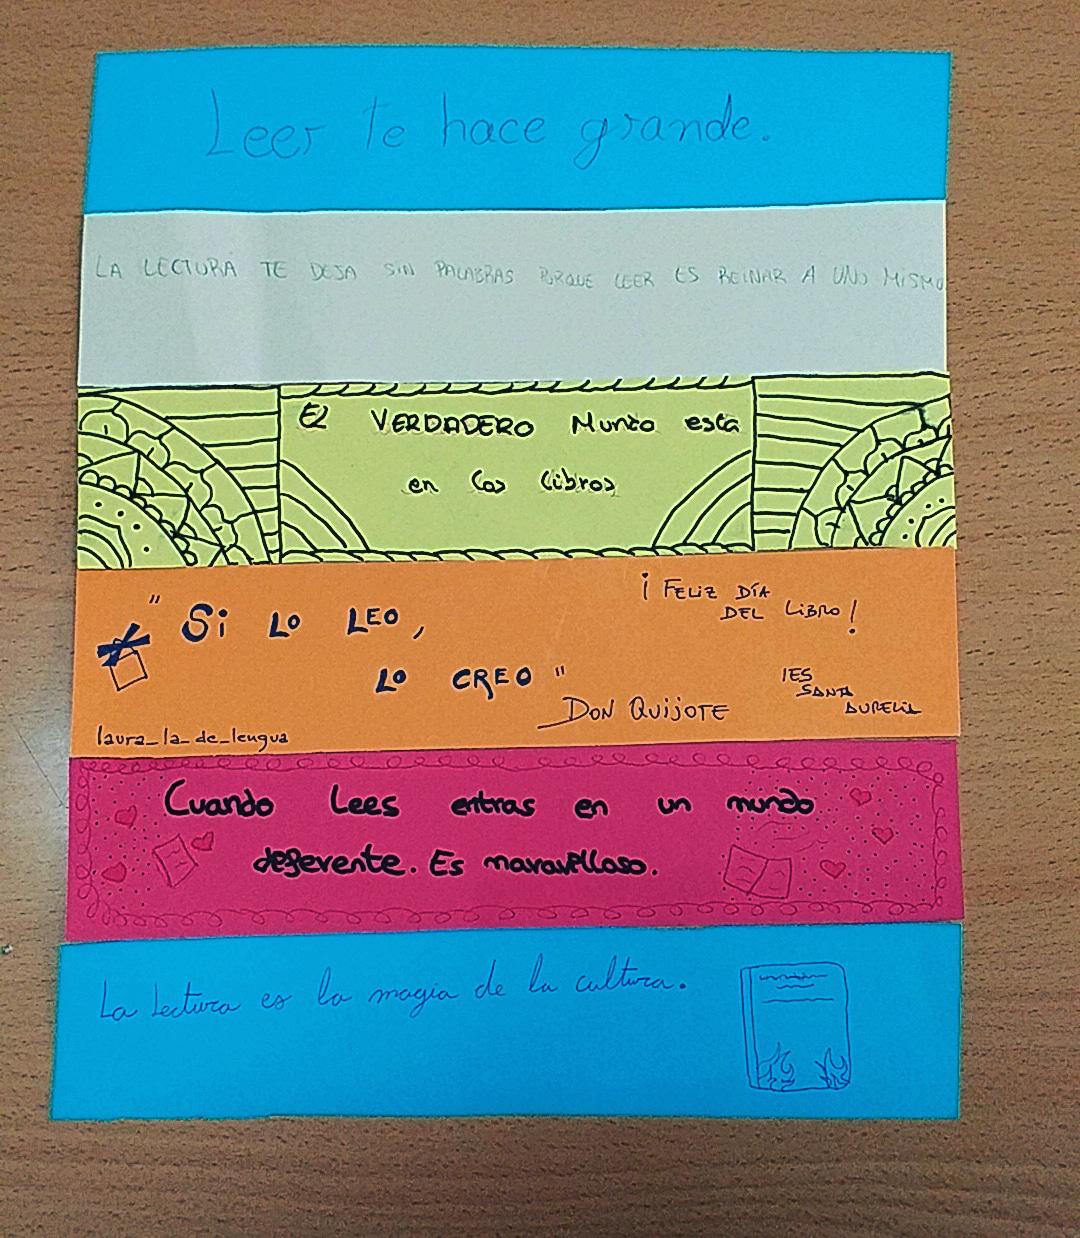 Leer te hace grande.
LA LECTURA TE DEJA SIN PALABRAS PORQUE LEER ES REINAR A UNO MISMO
El VERDADERO Mundo esta
en los libros
"Si LO LEO,
LO CREO"
DON QUIJOTE
¡FELIZ DÍA
DEL LIBRO!
IES
SANTA
AURELIA
laura_la_de_lengua
Cuando Lees entras en un mundo
deferente. Es maravilloso.
La Lectura es la magia de la cultura.